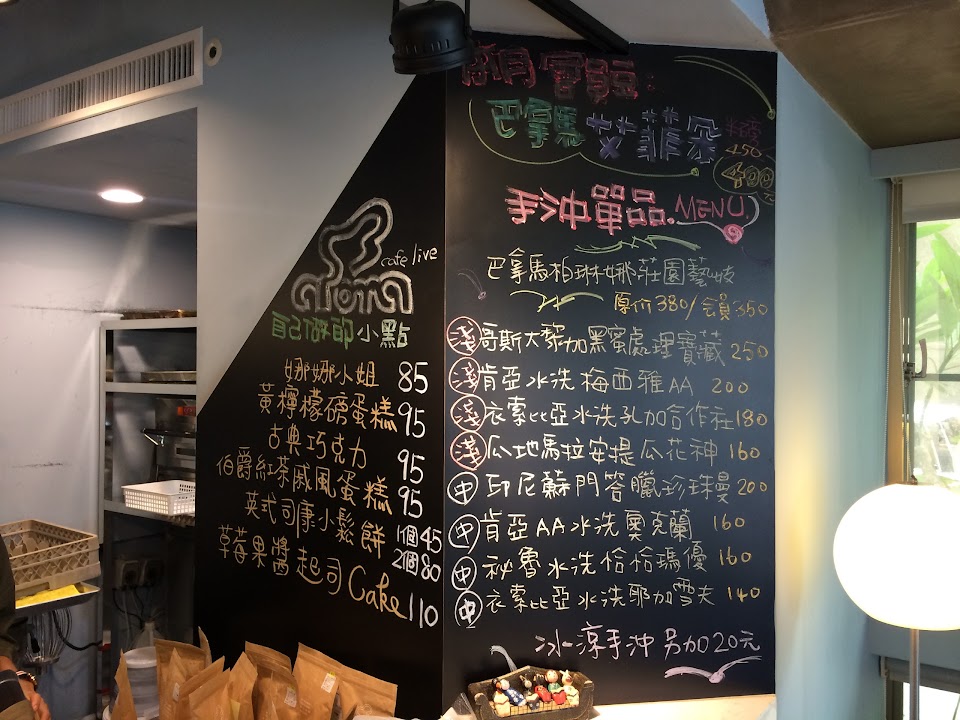 cafe live
自己做的小點
娜娜小姐 85
黃檸檬磅蛋糕 95
古典巧克力 95
伯爵紅茶戚風蛋糕 95
英式司康小鬆餅 1個45
2個80
草莓果醬起司Cake 110
巴拿馬 艾菲朵
半磅
450
400
手沖單品.MENU.
巴拿馬柏琳娜莊園藝妓
原价380/会員350
淺 哥斯大黎加黑蜜處理寶藏 250
淺 肯亞水洗梅西雅AA 200
淺 衣索比亞水洗孔加合作社 180
淺 瓜地馬拉安提瓜花神 160
中 印尼蘇門答臘珍珠曼 200
中 肯亞AA水洗奧克蘭 160
中 祕魯水洗恰恰瑪優 160
中 衣索比亞水洗耶加雪夫 140
冰涼手沖另加20元